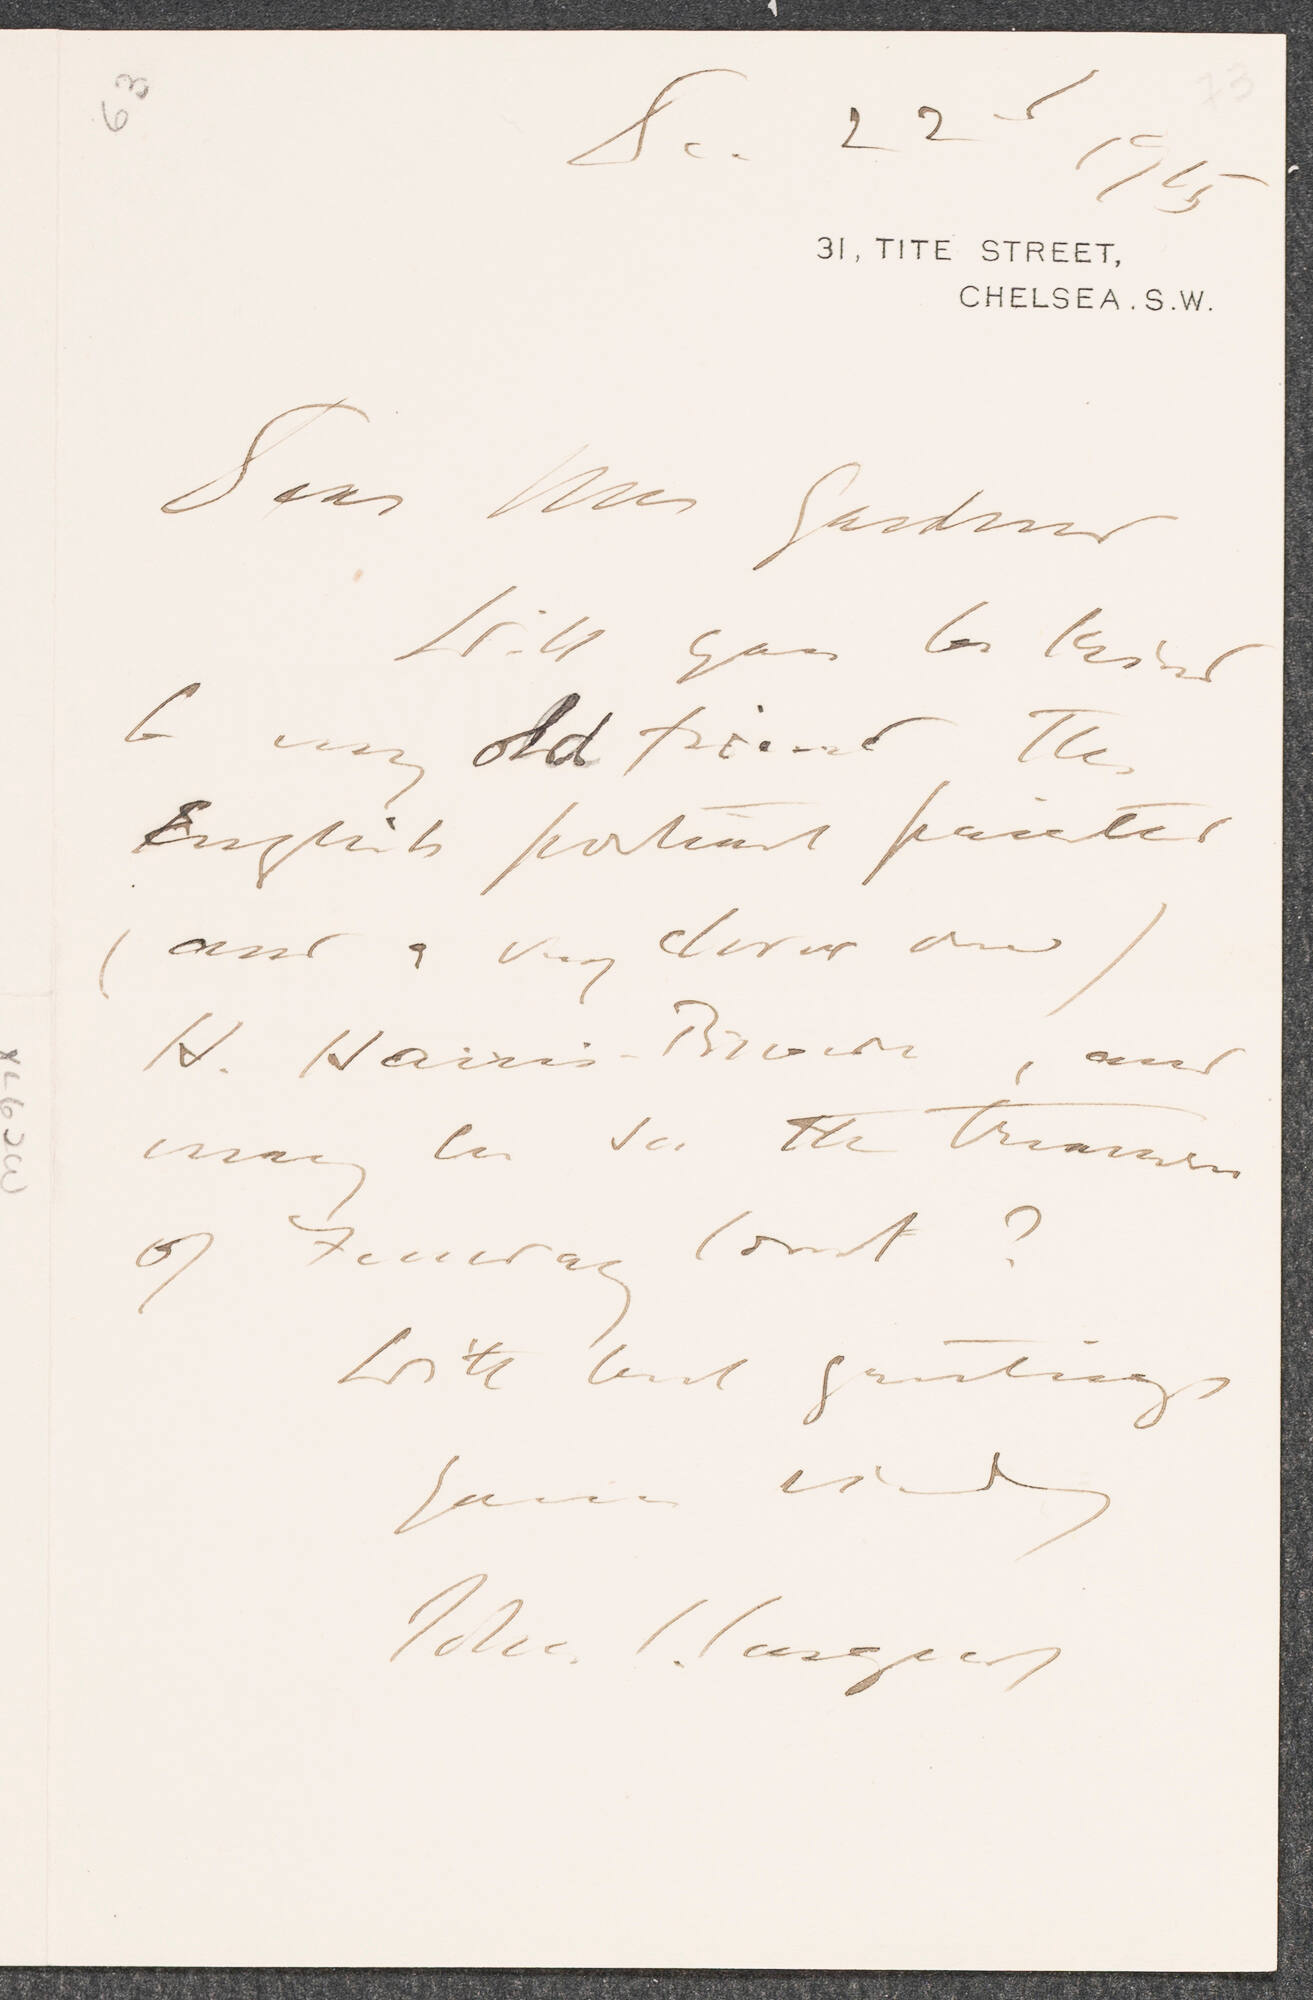 63
73
Dec. 22nd 1915
31, TITE STREET,
CHELSEA. S.W.
Dear Mrs Gardner
Will you be kind
to my old friend the
English portrait painter
(and a very clever one)
H. Harris-Brown, and
may he see the treasures
of Fenway Court?
With best greetings
Yours sincerely
John S. Sargent